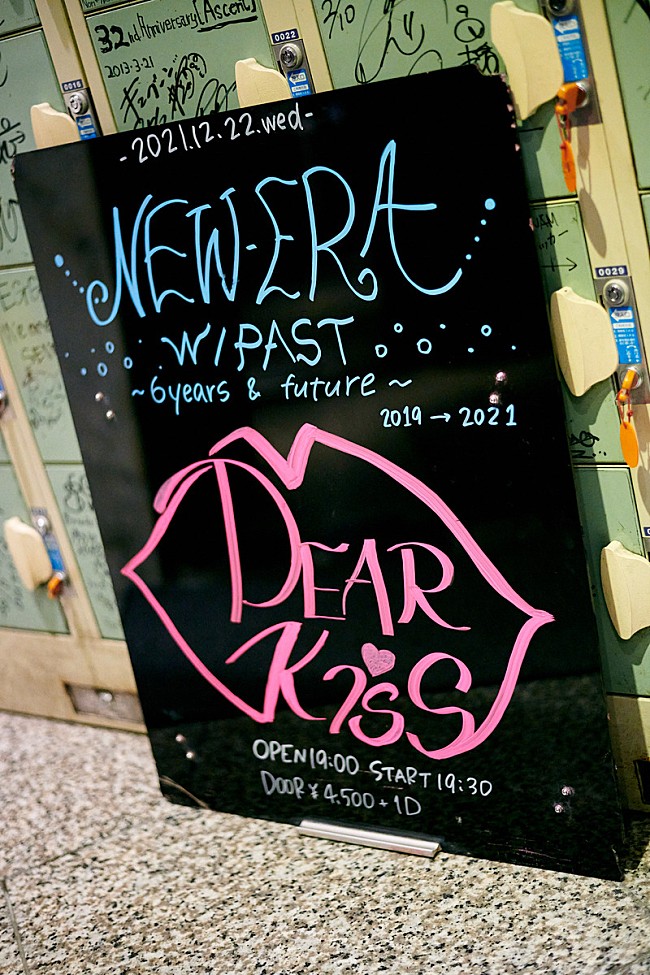 32nd Anniversary [Ascent]
2013-3-21
0022
0016
0029
-2021.12.22.wed-
NEW-ERA
W/PAST
~6years & future~
2019→2021
DEAR
KisS
OPEN19:00 START19:30
DOOR ¥4.500+1D